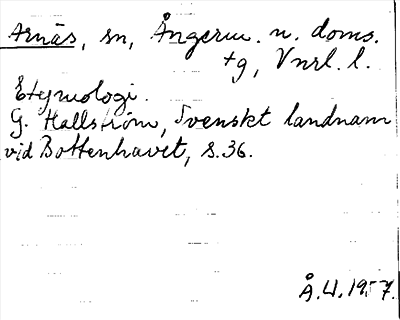 Arnäs, sn, Ångerm. n. doms.
tg, Vnrl. l.
Etymologi.
G. Hallström, Svenskt landnam
vid Bottenhavet, s. 36.
Å.U. 1957.